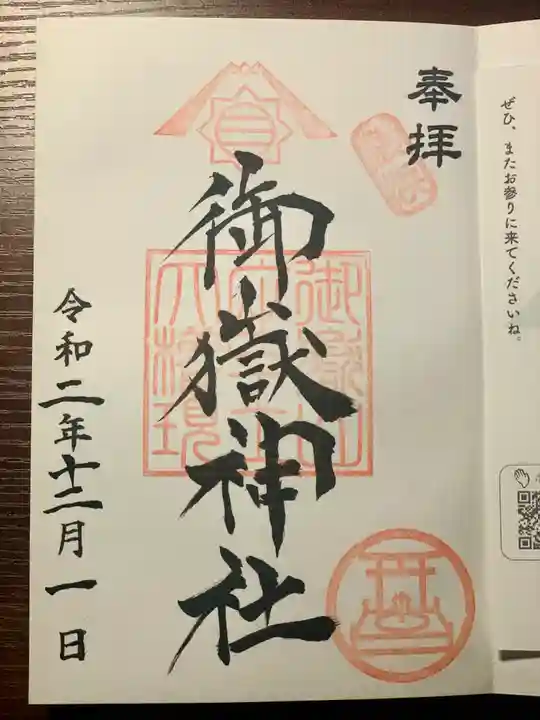 ぜひ、またお参りに来てくださいね。
奉拝
御嶽神社
令和二年十二月一日